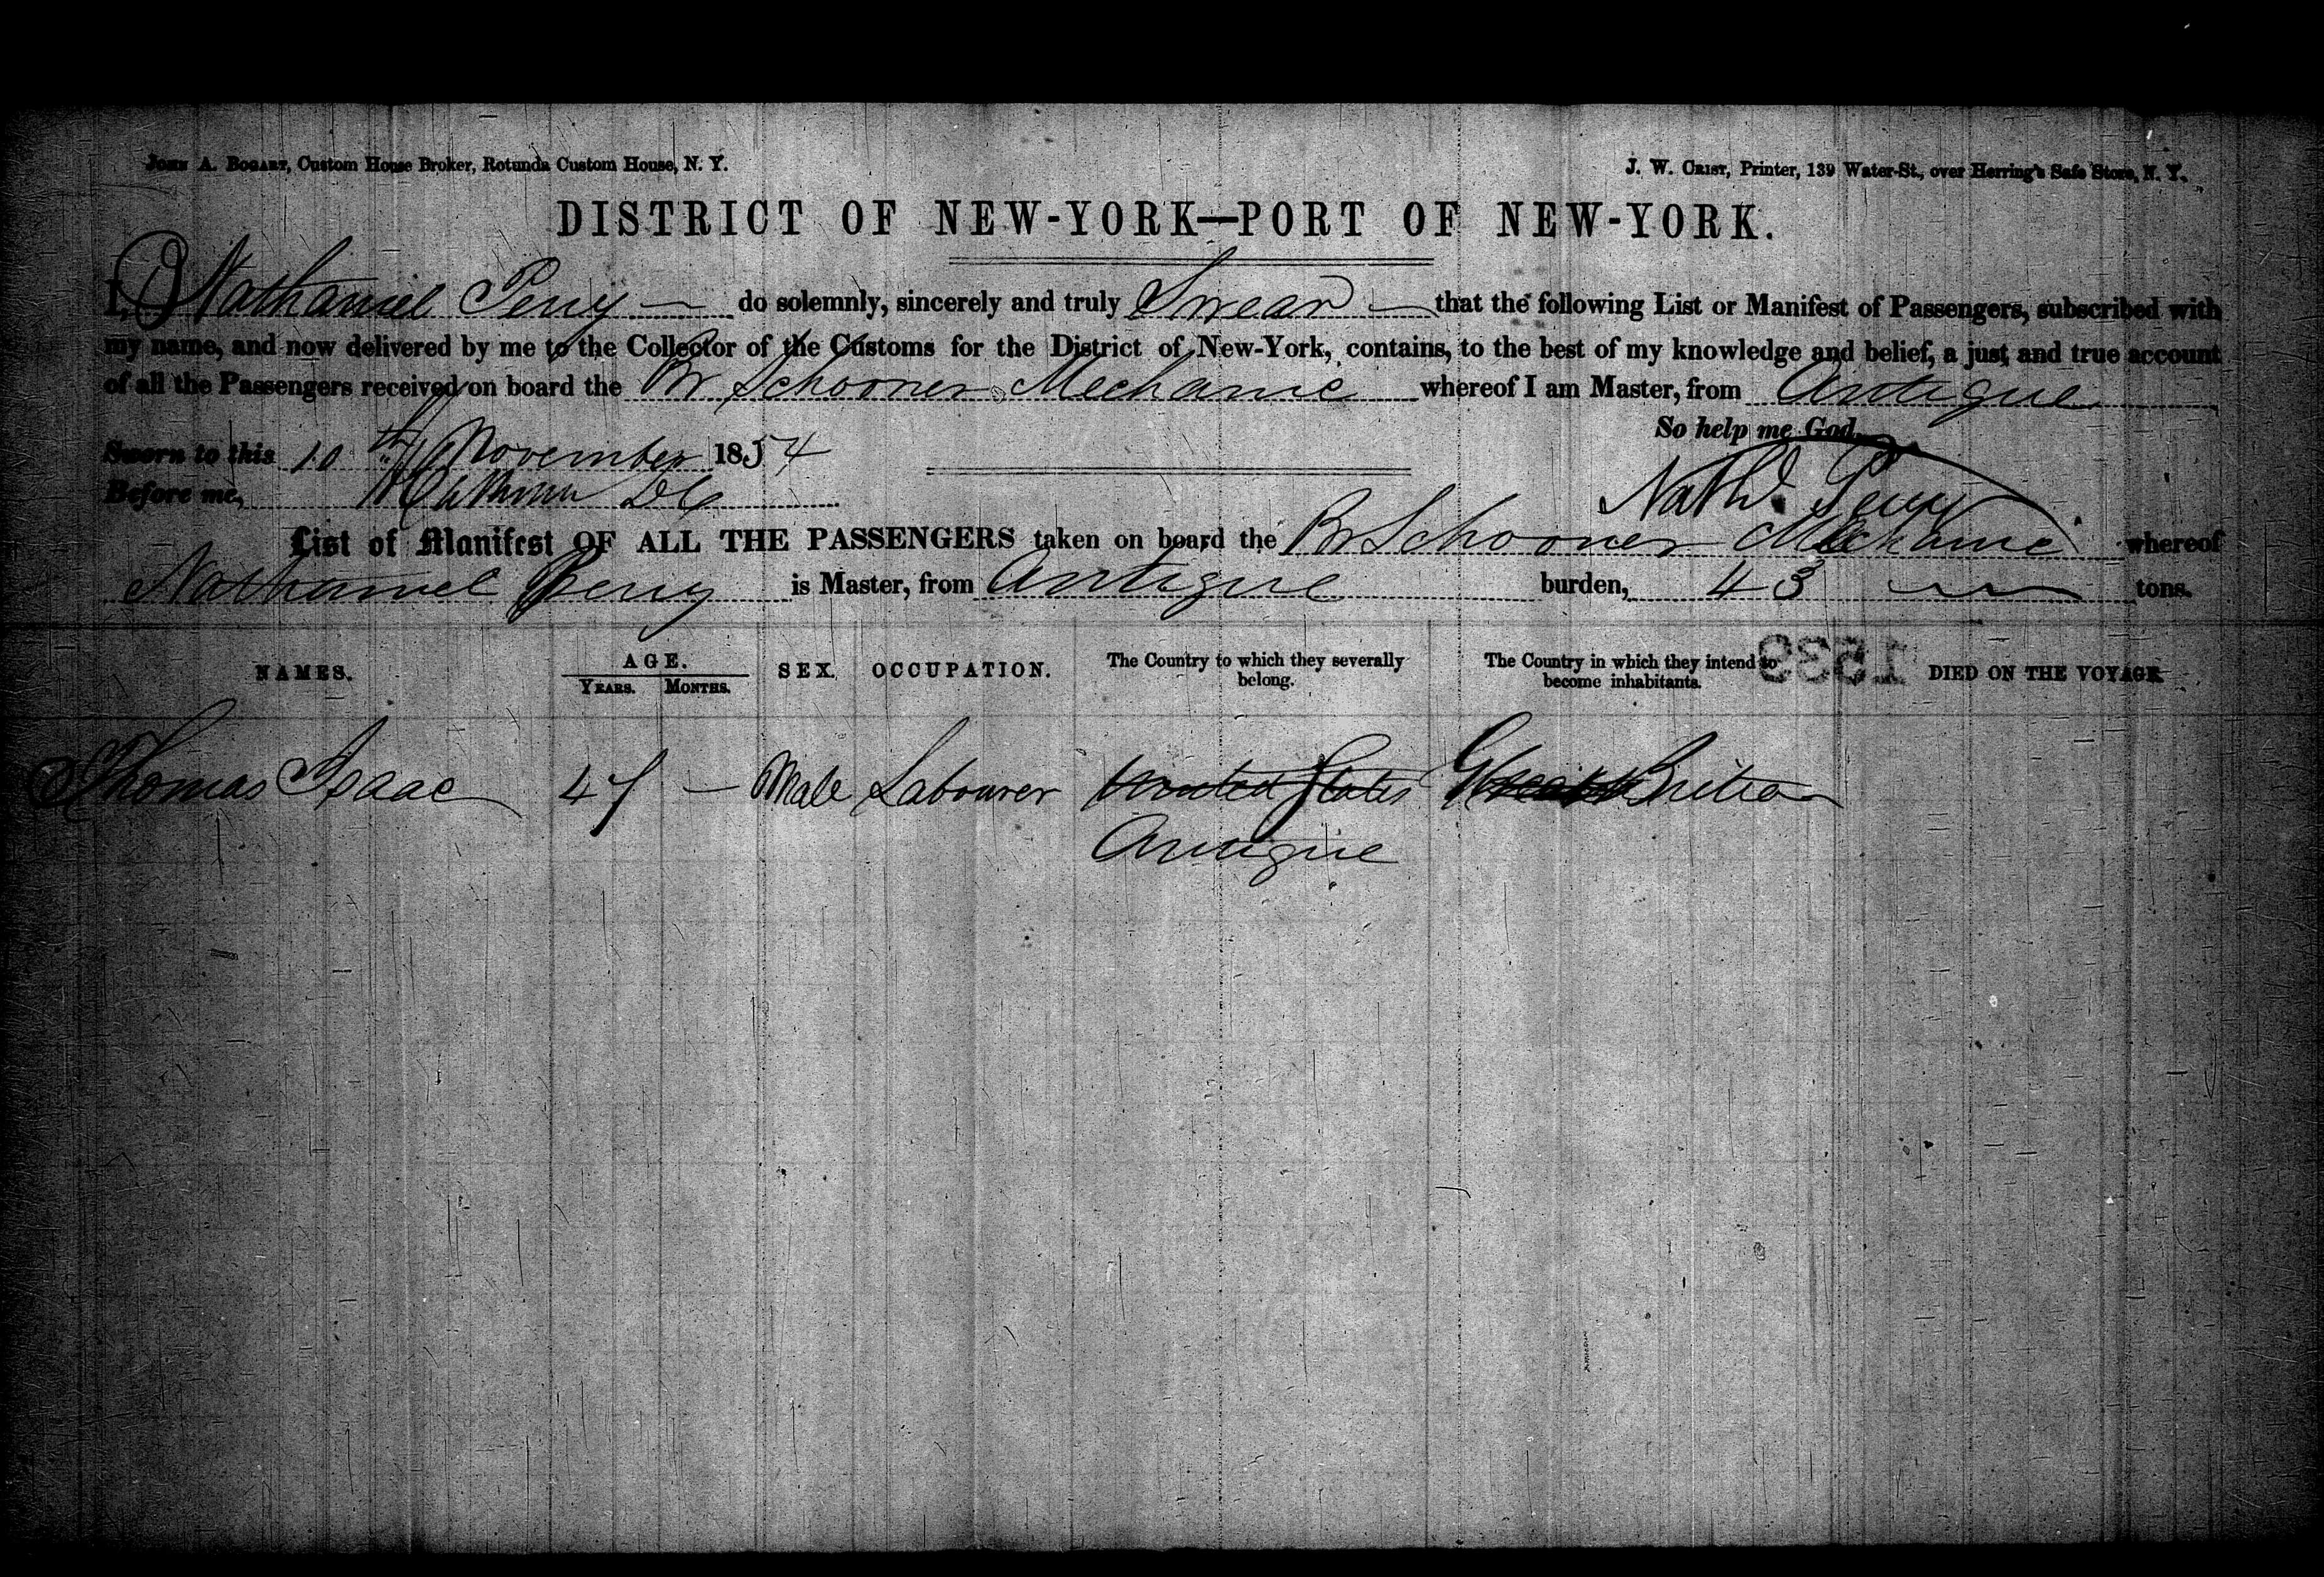 JOHN A. BOGART, Custom House Broker, Rotunda Custom House, N. Y.
J. W. CRIST, Printer, 139 Water-St., over Herring's Safe Store, N. Y.
DISTRICT OF NEW-YORK—PORT OF NEW-YORK.
I, Nathaniel Perry — do solemnly, sincerely and truly Swear — that the following List or Manifest of Passengers, subscribed with
my name, and now delivered by me to the Collector of the Customs for the District of New-York, contains, to the best of my knowledge and belief, a just and true account
of all the Passengers received on board the Br Schooner Mechanic whereof I am Master, from Antigue
So help me God.
Sworn to this 10th November 1854
Nathl. Perry
Before me,
List of Manifest OF ALL THE PASSENGERS taken on board the Br Schooner Mechanic whereof
Nathaniel Perry is Master, from Antigue burden, 43 tons.
NAMES. AGE. SEX. OCCUPATION. The Country to which they severally belong. The Country in which they intend to become inhabitants. DIED ON THE VOYAGE.
YEARS. MONTHS.
1533
Thomas Isaac 47 — Male Labourer United States Great Britian
Antigue